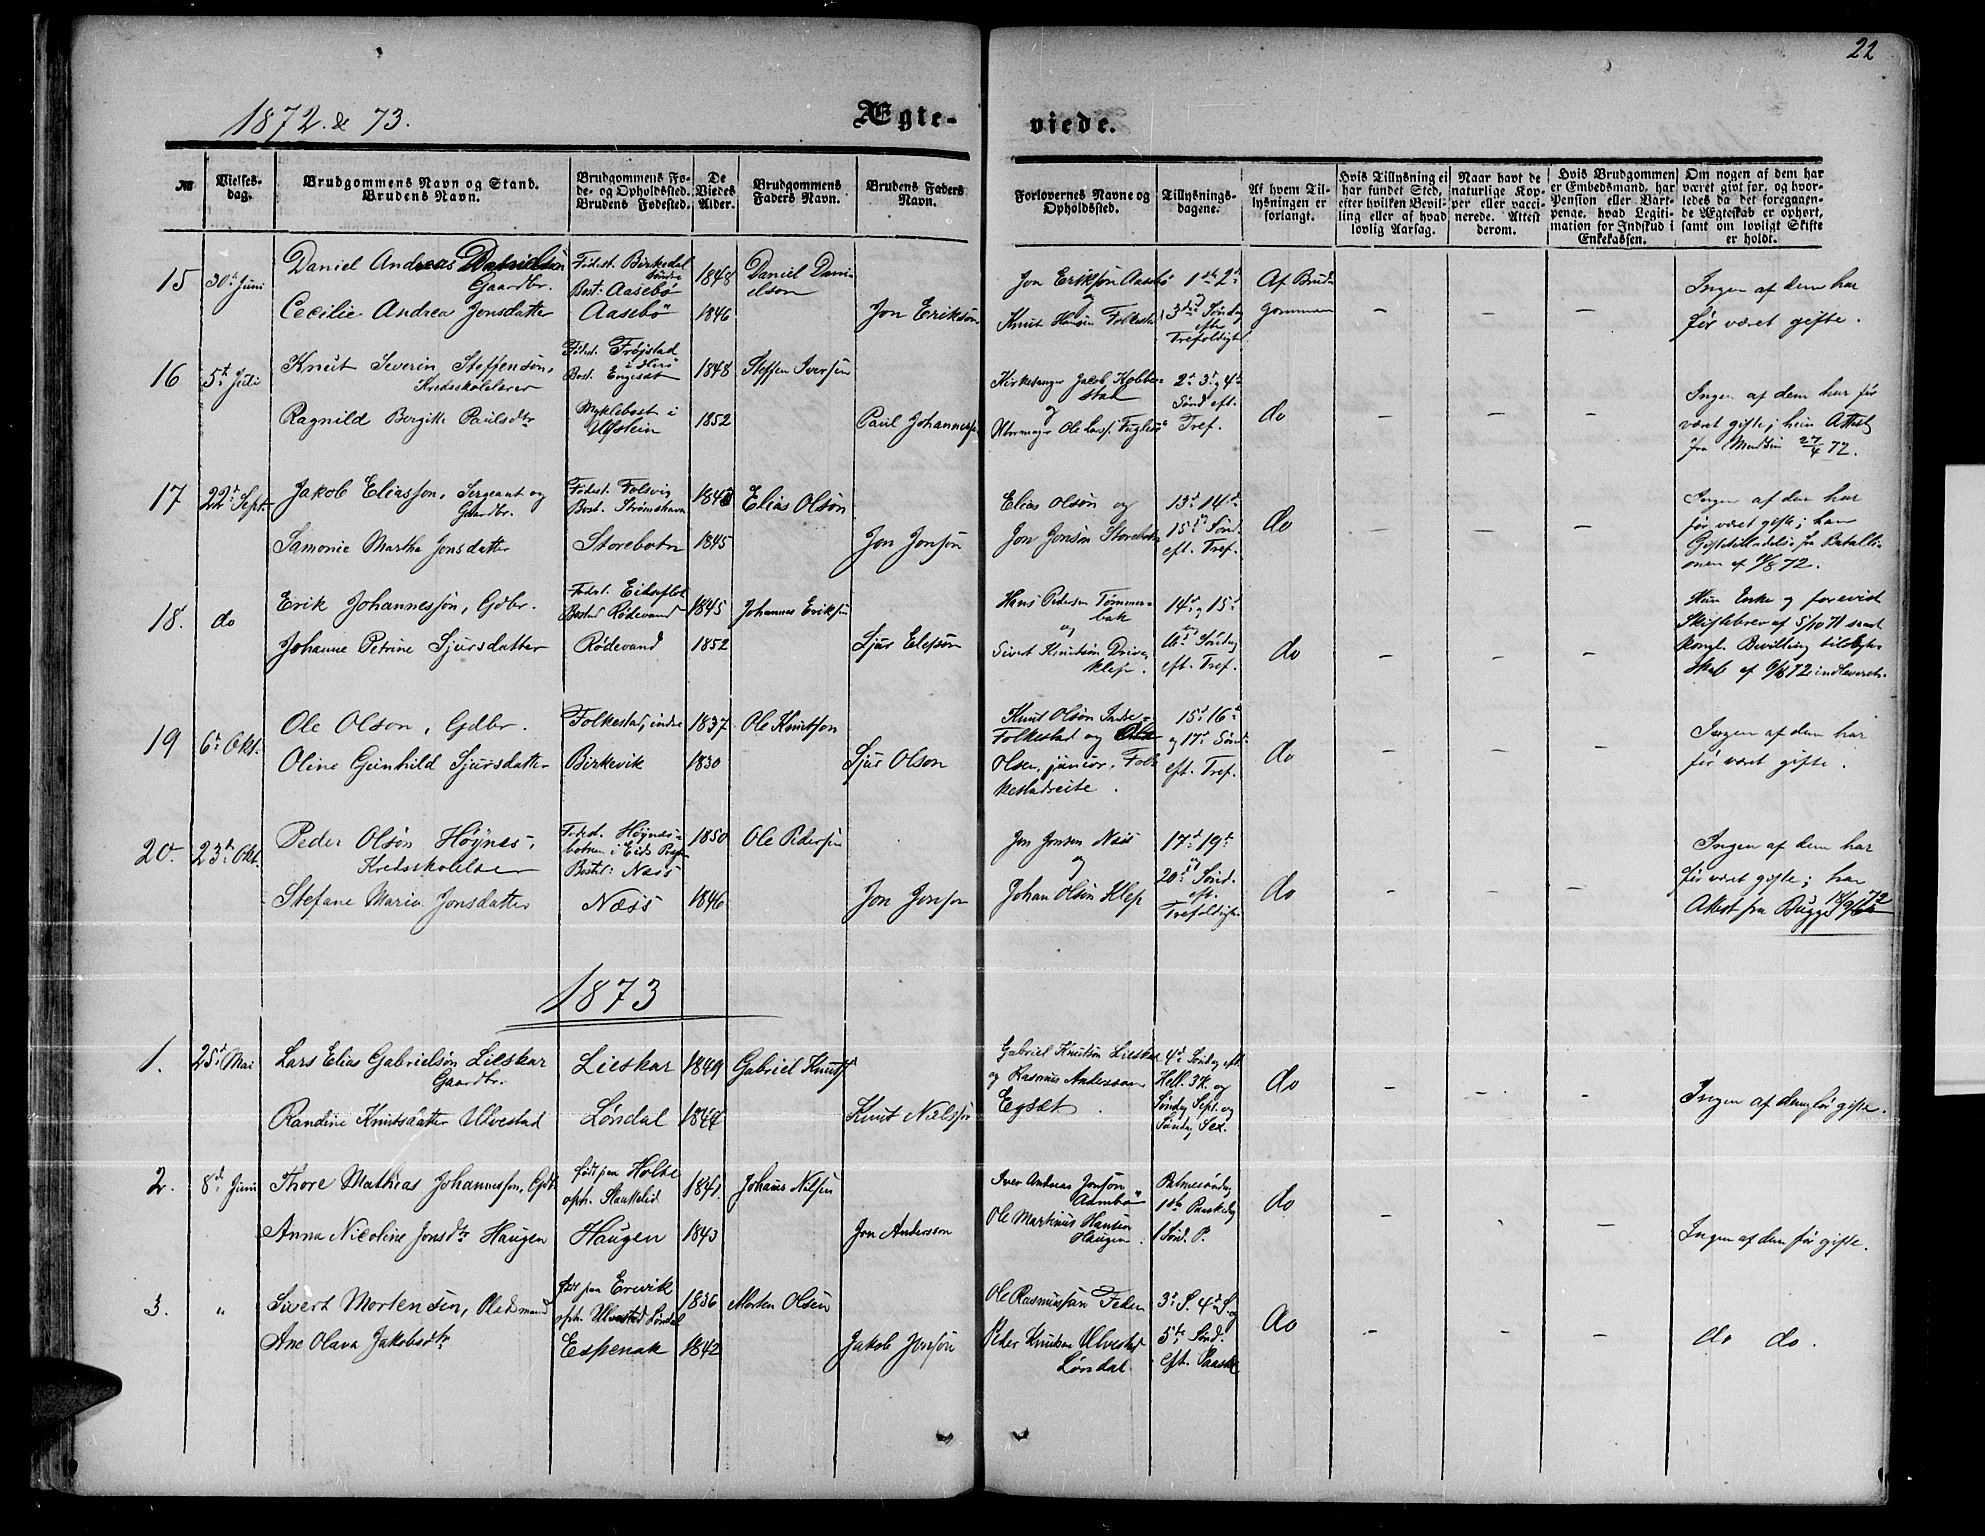 22
1872. & 73.
Ægte-
viede.
№
Vielses-
dag.
Brudgommens Navn og Stand.
Brudens Navn.
Brudgommens Fø-
de- og Opholdssted.
Brudens Fødested.
De
Viedes
Alder.
Brudgommens
Faders Navn.
Brudens Faders
Navn.
Forlovernes Navne og
Opholdssted.
Tillysnings-
dagene.
Af hvem Til-
lysningen er
forlangt.
Hvis Tillysning ei
har fundet Sted,
efter hvilken Bevil-
ling eller af hvad
lovlig Aarsag.
Naar havt de
naturlige Kop-
per eller vacci-
nerede. Attest
derom.
Hvis Brudgommen
er Embedsmand, har
Pension eller Vart-
penge, hvad Legiti-
mation for Indskud i
Enkekassen.
Om nogen af dem har
været gift før, og hvor-
ledes da det foregaaen-
de Ægteskab er ophørt,
samt om lovligt Skifte
er holdt.
15
30te Juni
Daniel Andreas Danielsøn
Gaardbr.
Cecilie Andrea Jonsdatter
Fødest. Birkedal
søndre
Bost: Aasebø
Aasebø
1848
1846
Daniel Dani
elson
Jon Erikson
Jon Eriksøn Aasebø
og
Knut Hansen Folkestad
1ste 2den
3die Søndag
efter
Trefoldigh.
Af Brud-
gommen
Ingen af dem har
før været gifte.
16
5te Juli
Knut Severin Steffensøn,
Kredsskolelærer
Ragnild Bergitte Paulsdtr
Fødest. Frøjstad
i Herø
Bost. Engeset
Myklebost i
Ulfstein
1848
1852
Steffen Iversen
Paul Johannesen
Kirkesanger Jacob Kobber-
stad
og
Ole Lars. Fuglesø
2. 3. og 4de
Sønd. eft.
Tref.
do
Ingen af dem har før
været gifte; hein Attest
fra 27/4 72.
17
22de Sept.
Jakob Eliassøn, Sergeant og
Gaardbr.
Samonie Martha Jonsdatter
Fødest. Folsvig
Bost. Strømshavn
Storebotn
1845
Elias Olsøn
Jon Jonsøn
Elias Olsøn og
Jon Jonsøn Storebotn
13de 14de
15de Sønd.
eft. Tref.
do
Ingen af dem har
før været gifte; han
Giftetilladelse fra Batalli-
onen af 72.
18.
do
Erik Johannessøn, Gdbr.
Johanne Petrine Sjursdatter
Fødest. Eiksetlet
Bosted Rødevand
Rødevand
1845
1852
Johannes Eriksen
Sjur Elefsøn
Hans Pedersen Tømmer-
bak
og
Sivert Knutsøn Driva
klep.
14de og 15de
Søndag
eft. Tref.
do
Hun Enke og forevist
Skiftebrev af 5/10 71 samt
kongl. Bevilling
Skab af 6/8 72 indleveret.
19
6te Okt.
Ole Olson, Gdbr.
Oline Gunhild Sjursdatter
Folkestad, indre
Birkevik
1837
1830
Ole Knutson
Sjur Olson
Knut Olsøn Indre-
Folkestad og Ole
Olsen, junior, Fol-
kestadreite.
15de 16de
og 17de Sønd.
eft. Tref.
do
Ingen af dem har
før været gifte.
20.
23de Okt.
Peder Olsøn Høynes,
Kredsskolelærer
Stefane Marie Jonsdatter
Fødest. Høynes-
botnen i Eids Præst
Bosted: Næss
Næss
1850
1846
Ole Pedersen
Jon Jonson
Jon Jonsen Næss
og
Johan Olsøn Klep
17de 19de
20de Sønd.
eft.
Trefoldigh.
do
Ingen af dem har
før været gifte; har
Attest fra Bugge 14/9 72
1873
1.
25de Mai
Lars Elias Gabrielsøn Lieskar
Gaardbr.
Randine Knutsdatter Ulvestad
Lieskar
Løndal
1849
1844
Gabriel Knuts.
Knut Nielsen
Gabriel Knutsøn Lieskar
og Rasmus Anderssøn
Egset.
4de Søndag eft.
Hell. 3K. og
Søndag Sept. og
Søndag Sex.
do
Ingen af dem før gifte.
2.
8de Juni
Thore Mathias Johannessøn, Gdb.
Anna Nicoline Jonsdtr Haugen
født paa Holte
oph. Slaakelid
Haugen
1841.
1843
Johans Nilsen
Jon Andersson
Iver Andreas Jonsøn
Aambø
Ole Martinus Hansen
Haugen.
Palmesøndag
1ste Paaskedag
1 Sønd. P.
do
Ingen af dem før gifte.
3.
"
Sivert Mortensen, Pladsmand
Ane Olava Jakobsdtr
født paa Erevik
oph. Ulvestad Løndal
Espenak
1836
1842
Morten Olsen
Jakob Jonsøn
Ole Rasmussøn Feden
Peder Knutsen Ulvestad
Løndal.
3de S. 4de S. og
5te Sønd.
eft. Paaske
do
do do.